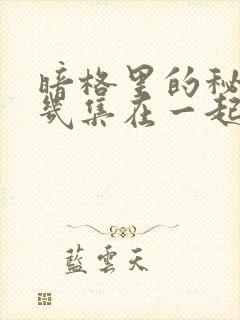 暗格里的秘
幾集在一起
藍雲天